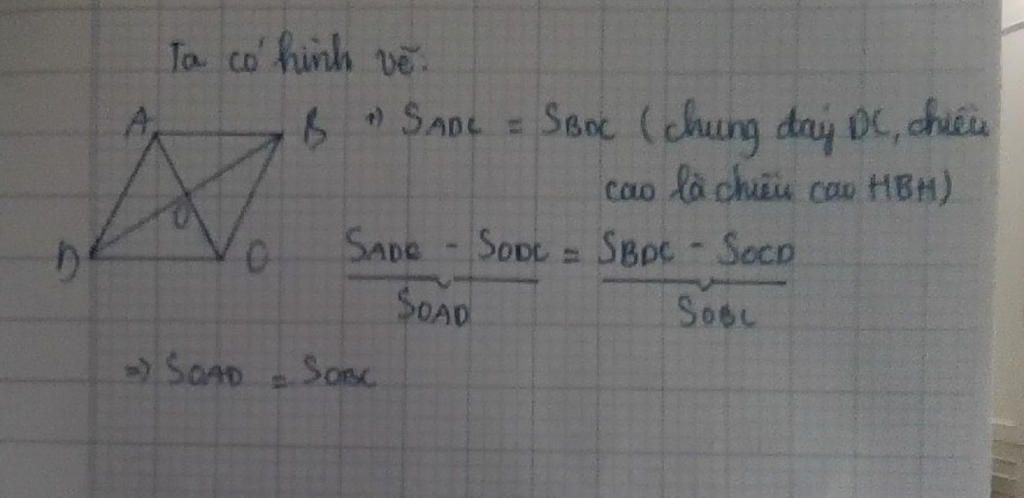 Ta có hình vẽ:
A B +) SADC = SBDC (chung đáy DC, chiều
cao là chiều cao HBH)
O
D C SADC - SODC = SBDC - SOCD
SOAD SOBC
=> SOAD = SOBC